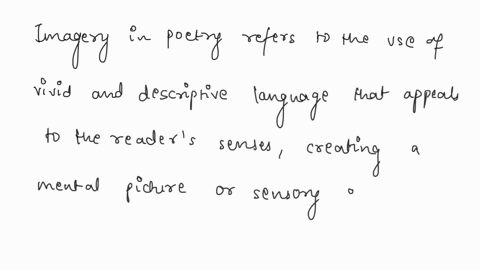 Imagery in poetry refers to the use of
vivid and descriptive language that appeals
to the reader's senses, creating a
mental picture or sensory